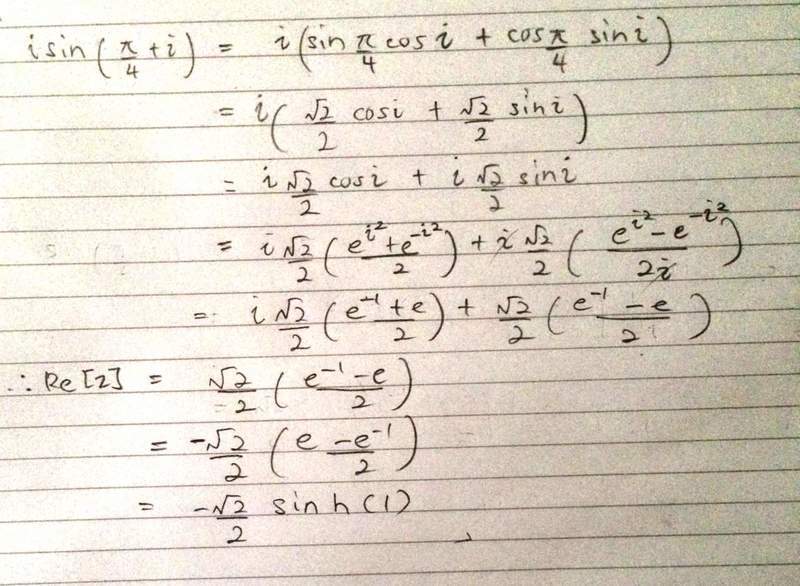 i sin(π/4 + i) = i(sin π/4 cos i + cos π/4 sin i)
= i(√2/2 cos i + √2/2 sin i)
= i √2/2 cos i + i √2/2 sin i
= i √2/2 ((e^{i²} + e^{-i²})/2) + i √2/2 ((e^{i²} - e^{-i²})/2i)
= i √2/2 ((e^{-1} + e)/2) + √2/2 ((e^{-1} - e)/2)
∴ Re[z] = √2/2 ((e^{-1} - e)/2)
= -√2/2 ((e - e^{-1})/2)
= -√2/2 sinh(1)